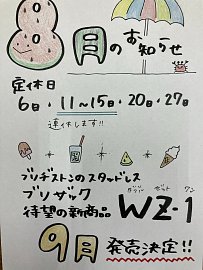 8月のお知らせ
定休日
6日・11〜15日・20日・27日
連休します!!
ブリヂストンのスタッドレス
ブリザック
待望の新商品 WZ-1
ダブリュー ゼット ワン
9月 発売決定!!